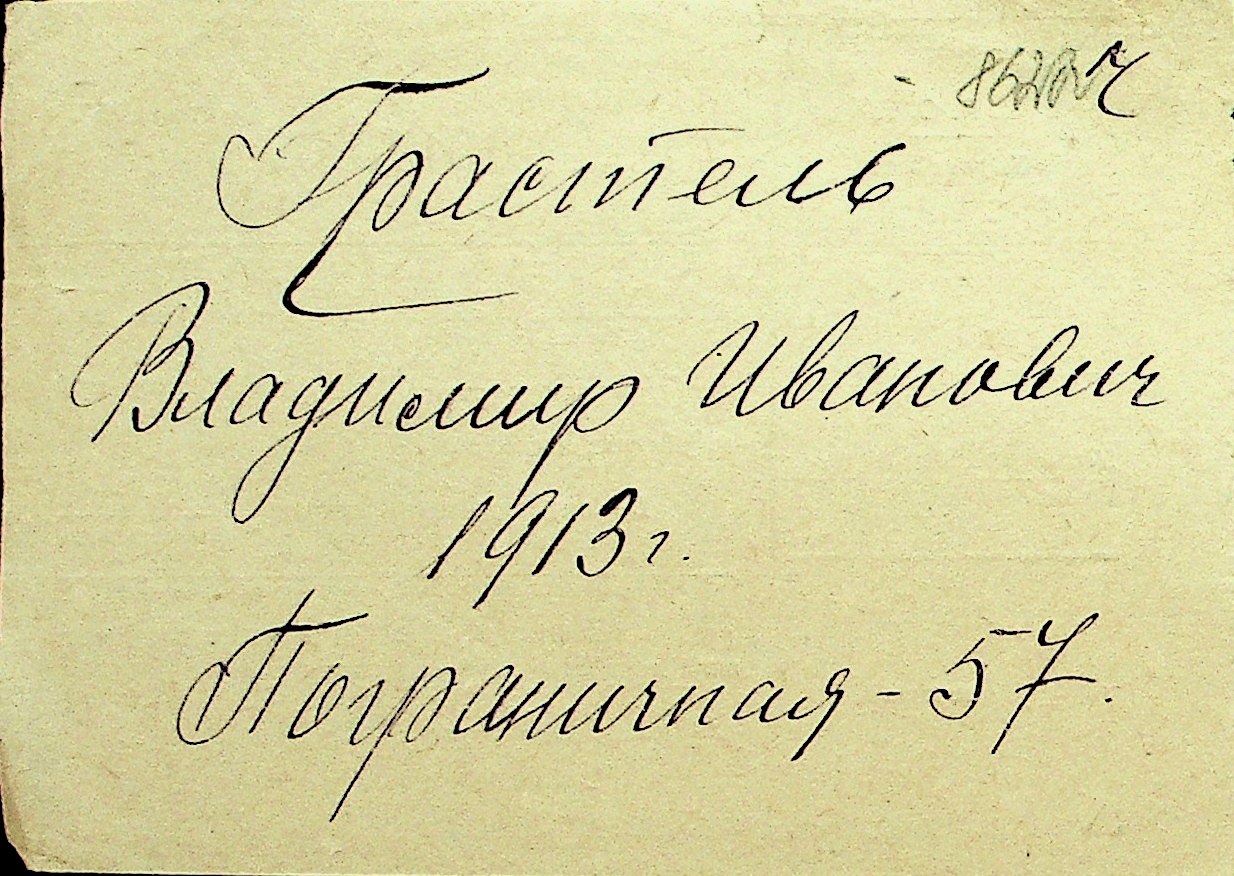 Грастель
Владимир Иванович
1913г.
Пограничная - 57.